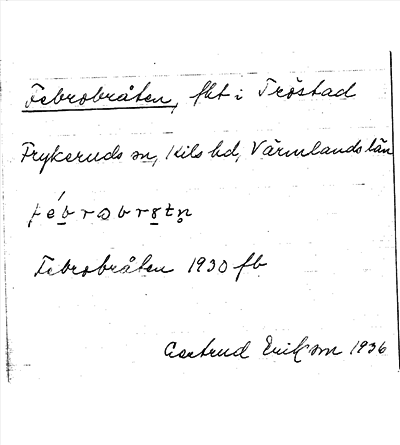 Febrobråten, fht i Tröstad
Frykeruds sn, Kils hd, Värmlands län
Febrobråten 1930 fb
Gertrud Erikson 1936